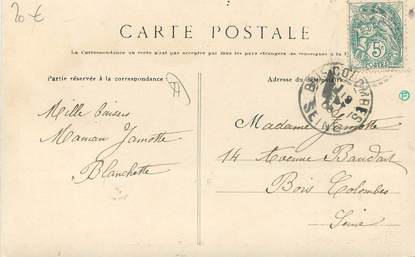 20 €
CARTE POSTALE
La Correspondance au recto n'est pas acceptée par tous les pays étrangers
Partie réservée à la correspondance
Adresse du
5c
POSTES
BOIS-COLOMBES
SEINE
Mille baisers
Maman Jamotte
Blanchette
Madame Jamotte
14 Avenue Baudard
Bois Colombes
Seine